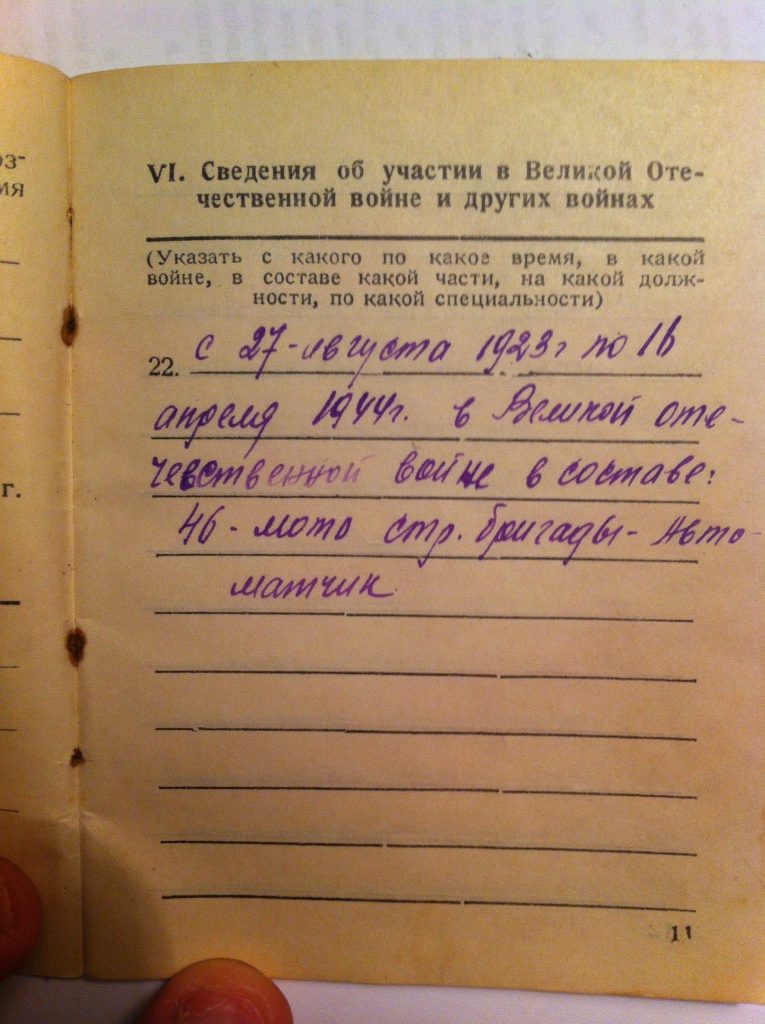 оз-
ия
г.
VI. Сведения об участии в Великой Оте-
чественной войне и других войнах
(Указать с какого по какое время, в какой
войне, в составе какой части, на какой долж-
ности, по какой специальности)
22. с 27-августа 1923г по 16
апреля 1944г. в Великой оте-
чевственной войне в составе:
46- мото стр. бригады- Авто-
матчик
11